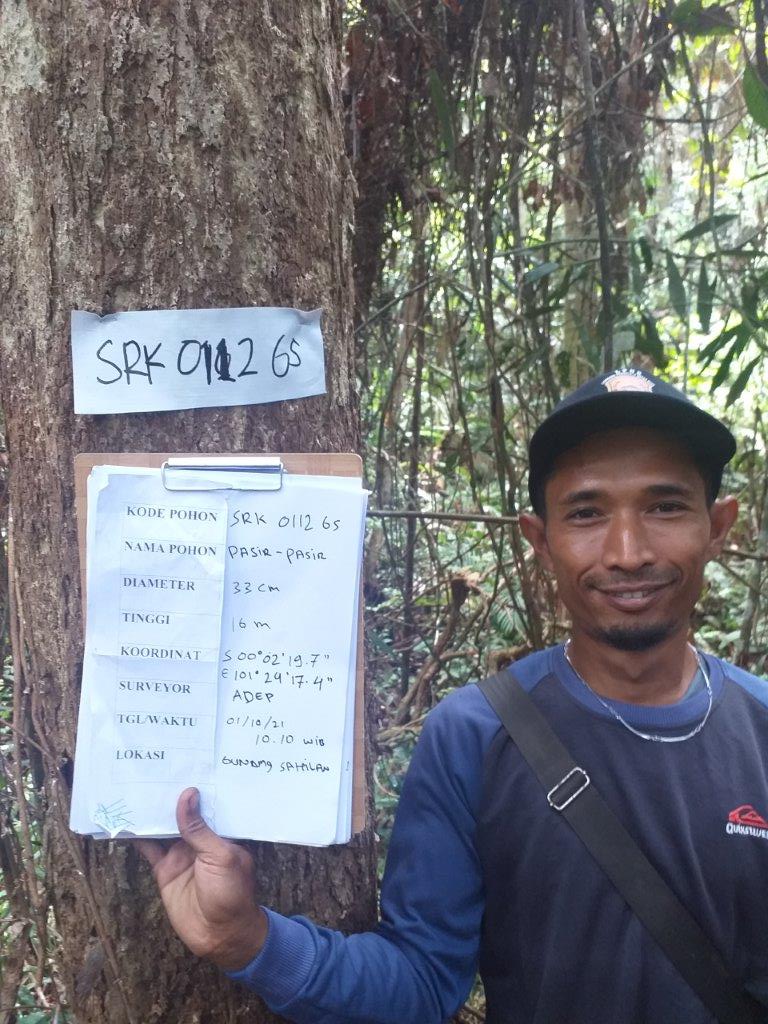 SRK 0112 GS
KODE POHON SRK 0112 GS
NAMA POHON PASIR-PASIR
DIAMETER 33 cm
TINGGI 16 m
KOORDINAT S 00°02'19.7"
E 101°29'17.4"
SURVEYOR ADEP
TGL/WAKTU 01/10/21
10.10 WIB
LOKASI GUNUNG SAHILAN